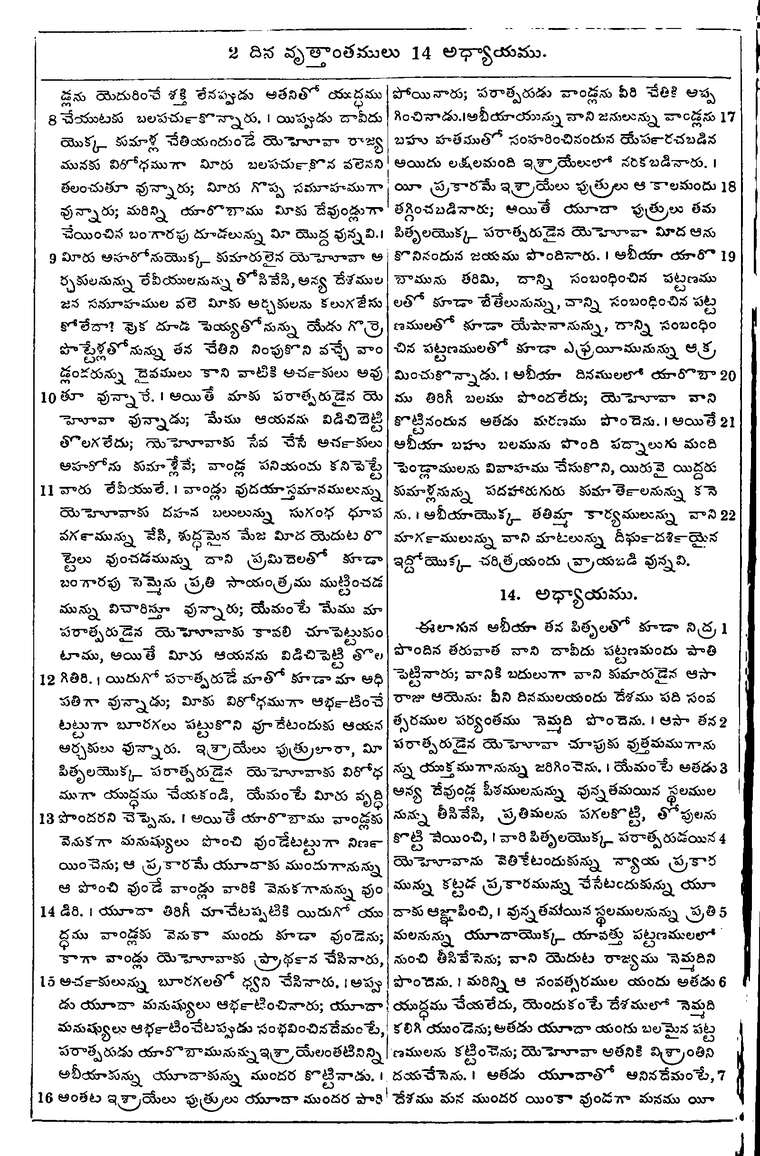 2 దిన వృత్తాంతములు 14 అధ్యాయము.
డ్లను యెదురించే శక్తి లేనప్పుడు అతనితో యుద్ధము
8 చేయుటకు బలపర్చుకొన్నారు. । యిప్పుడు దావీదు
యొక్క కుమాళ్ల చేతియందుండే యెహోవా రాజ్య
మునకు విరోధముగా మీరు బలపర్చుకొన వలెనని
తలంచుతూ వున్నారు; మీరు గొప్ప సమూహముగా
వున్నారు; మరిన్ని యారొబాము మీకు దేవుండ్లుగా
చేయించిన బంగారపు దూడలున్ను మీ యొద్ద వున్నవి. ।
9 మీరు అహరోనుయొక్క కుమారులైన యెహోవా అ
ర్చకులనున్ను లేవీయులనున్ను తోసివేసి, అన్య దేశముల
జన సమూహముల వలె మీకు అర్చకులను కలుగజేసు
కోలేదా! వుక దూడ పెయ్యతోనున్ను యేడు గొర్రె
పొట్టేళ్లతోనున్ను తన చేతిని నింపుకొని వచ్చే వాం
డ్లందరున్ను దైవములు కాని వాటికి అర్చకులు అవు
10 తూ వున్నారే. । అయితే మాకు పరాత్పరుడైన యె
హోవా వున్నాడు; మేము ఆయనను విడిచిబెట్టి
తొలగలేదు; యెహోవాకు సేవ చేసే అర్చకులు
అహరోను కుమాళ్లేవే; వాండ్ల పనియందు కనిపెట్టే
11 వారు లేవీయులే. । వాండ్లు వుదయాస్తమానములున్ను
యెహోవాకు దహన బలులున్ను సుగంధ ధూప
వర్గమున్ను వేసి, శుద్ధమైన మేజ మీద యెదుట రొ
ట్టెలు వుంచడమున్ను దాని ప్రమిదెలతో కూడా
బంగారపు సెమ్మెను ప్రతి సాయంత్రము ముట్టించడ
మున్ను విచారిస్తూ వున్నారు; యేమంటే మేము మా
పరాత్పరుడైన యెహోవాకు కావలి చూపెట్టుకుం
టాము, అయితే మీరు ఆయనను విడిచిపెట్టి తొల
12 గితిరి. । యిదుగో పరాత్పరుడే మాతో కూడా మా అధి
పతిగా వున్నాడు; మీకు విరోధముగా ఆర్భటించే
టట్టుగా బూరగలు పట్టుకొని వూదేటందుకు ఆయన
అర్చకులు వున్నారు. ఇశ్రాయేలు పుత్రులారా, మీ
పితృలయొక్క పరాత్పరుడైన యెహోవాకు విరోధ
ముగా యుద్ధము చేయకండి, యేమంటే మీరు వృద్ధి
13 పొందరని చెప్పెను. । అయితే యారొబాము వాండ్లకు
వెనుకగా మనుష్యులు పొంచి వుండేటట్టుగా నిర్ణ
యించెను; ఆ ప్రకారమే యూదాకు ముందుగానున్ను
ఆ పొంచి వుండే వాండ్లు వారికి వెనుకగానున్ను వుం
14 డిరి. । యూదా తిరిగీ చూచేటప్పటికి యిదుగో యు
ద్ధము వాండ్లకు వెనుకా ముందు కూడా వుండెను;
కాగా వాండ్లు యెహోవాకు ప్రార్థన చేసినారు,
15 అర్చకులున్ను బూరగలతో ధ్వని చేసినారు. । అప్పు
డు యూదా మనుష్యులు ఆర్భటించినారు; యూదా
మనుష్యులు ఆర్భటించేటప్పుడు సంభవించినదేమంటే,
పరాత్పరుడు యారొబామునున్ను ఇశ్రాయేలంతటినిన్ని
అబీయాకున్ను యూదాకున్ను ముందర కొట్టినాడు. ।
16 అంతట ఇశ్రాయేలు పుత్రులు యూదా ముందర పారి
పోయినారు; పరాత్పరుడు వాండ్లను వీరి చేతికి అప్ప
గించినాడు. । అబీయాయున్ను వాని జనులున్ను వాండ్లను 17
బహు హతముతో సంహరించినందున యేపఱరచబడిన
అయిదు లక్షలమంది ఇశ్రాయేలులో నరికబడినారు. ।
యీ ప్రకారమే ఇశ్రాయేలు పుత్రులు ఆ కాలమందు 18
తగ్గించబడినారు; అయితే యూదా పుత్రులు తమ
పితృలయొక్క పరాత్పరుడైన యెహోవా మీద ఆను
కొనినందున జయము పొందినారు. । అబీయా యారొ 19
బామును తరిమి, దాన్ని సంబంధించిన పట్టణము
లతో కూడా బేతేలునున్ను, దాన్ని సంబంధించిన పట్ట
ణములతో కూడా యేషానానున్ను, దాన్ని సంబంధిం
చిన పట్టణములతో కూడా ఎఫ్రయీమునున్ను ఆక్ర
మించుకొన్నాడు. । అబీయా దినములలో యారొబా 20
ము తిరిగీ బలము పొందలేదు; యెహోవా వాని
కొట్టినందున అతడు మరణము పొందెను. । అయితే 21
అబీయా బహు బలమును పొంది పద్నాలుగు మంది
పెండ్లాములను వివాహము చేసుకొని, యిరువై యిద్దరు
కుమాళ్లనున్ను పదహారుగురు కుమార్తెలనున్ను కనె
ను. । అబీయాయొక్క తతిమ్మా కార్యములున్ను వాని 22
మార్గములున్ను వాని మాటలున్ను దీర్ఘదర్శియైన
ఇద్దోయొక్క చరిత్రయందు వ్రాయబడి వున్నవి.
14. అధ్యాయము.
ఈలాగున అబీయా తన పితృలతో కూడా నిద్ర 1
పొందిన తరువాత వాని దావీదు పట్టణమందు పాతి
పెట్టినారు; వానికి బదులుగా వాని కుమారుడైన ఆసా
రాజు ఆయెను: వీని దినములయందు దేశము పది సంవ
త్సరముల పర్యంతము నెమ్మది పొందెను. । ఆసా తన 2
పరాత్పరుడైన యెహోవా చూపుకు వుత్తమముగాను
న్ను యుక్తముగానున్ను జరిగించెను. । యేమంటే అతడు 3
అన్య దేవుండ్ల పీఠములనున్ను వున్నతమయిన స్థలముల
నున్ను తీసివేసి, ప్రతిమలను పగలకొట్టి, తోపులను
కొట్టి వేయించి, । వారి పితృలయొక్క పరాత్పరుడయిన 4
యెహోవాను వెతికేటందుకున్ను న్యాయ ప్రకార
మున్ను కట్టడ ప్రకారమున్ను చేసేటందుకున్ను యూ
దాకు ఆజ్ఞాపించి, । వున్నతమయిన స్థలములనున్ను ప్రతి 5
మలనున్ను యూదాయొక్క యావత్తు పట్టణములలో
నుంచి తీసివేసెను; వాని యెదుట రాజ్యము నెమ్మదిని
పొందెను. । మరిన్ని ఆ సంవత్సరముల యందు అతడు 6
యుద్ధము చేయలేదు, యెందుకంటే దేశములో నెమ్మది
కలిగి యుండెను; అతడు యూదా యందు బలమైన పట్ట
ణములను కట్టించెను; యెహోవా అతనికి విశ్రాంతిని
దయచేసెను. । అతడు యూదాతో అనినదేమంటే, 7
దేశము మన ముందర యింకా వుండగా మనము యీ